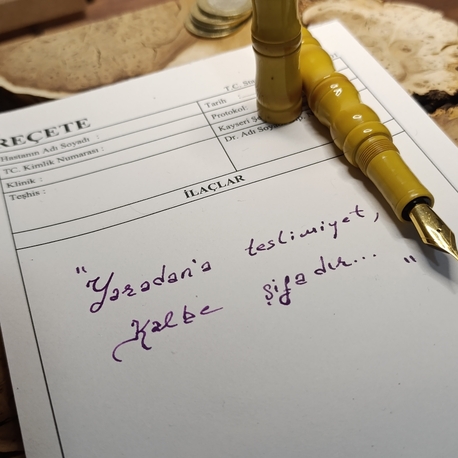 REÇETE
T.C.
Hastanın Adı Soyadı :
Tarih :
TC. Kimlik Numarası :
Protokol:
Klinik :
Kayseri
Teşhis :
Dr. Adı
İLAÇLAR
"Yaradan'a teslimiyet,
Kalbe şifadır... "